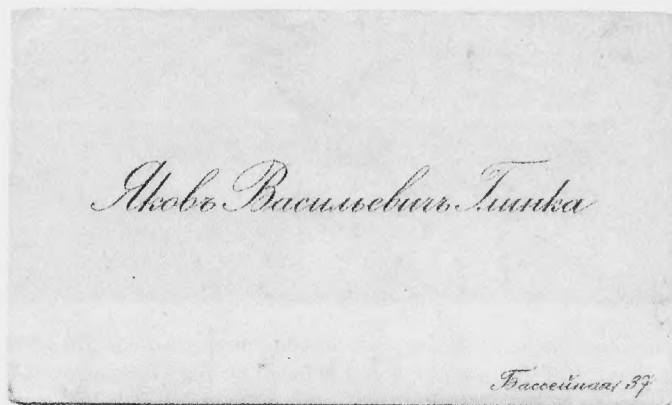 Яковъ Васильевичъ Глинка
Бассейная, 37